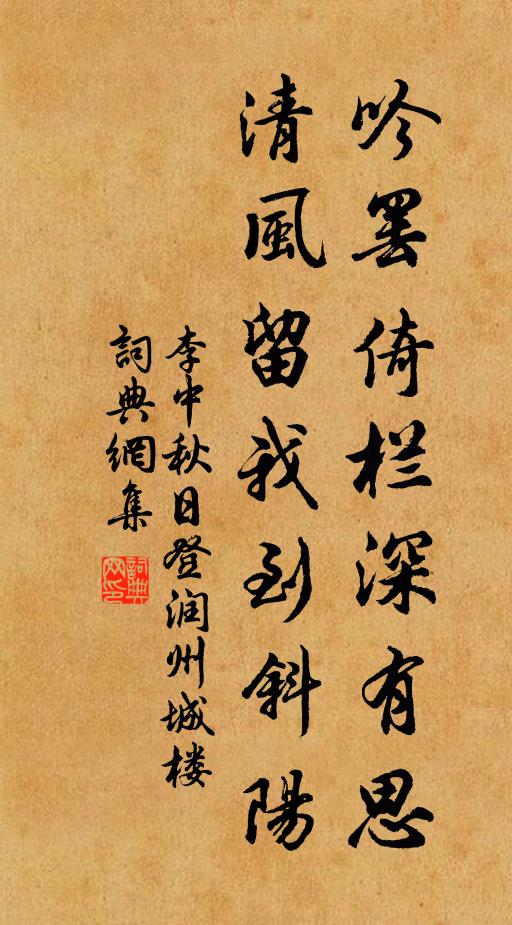 吟罢倚栏深有思
清風留我到斜陽
李中秋日登润州城楼
詞典網集
詞典网印